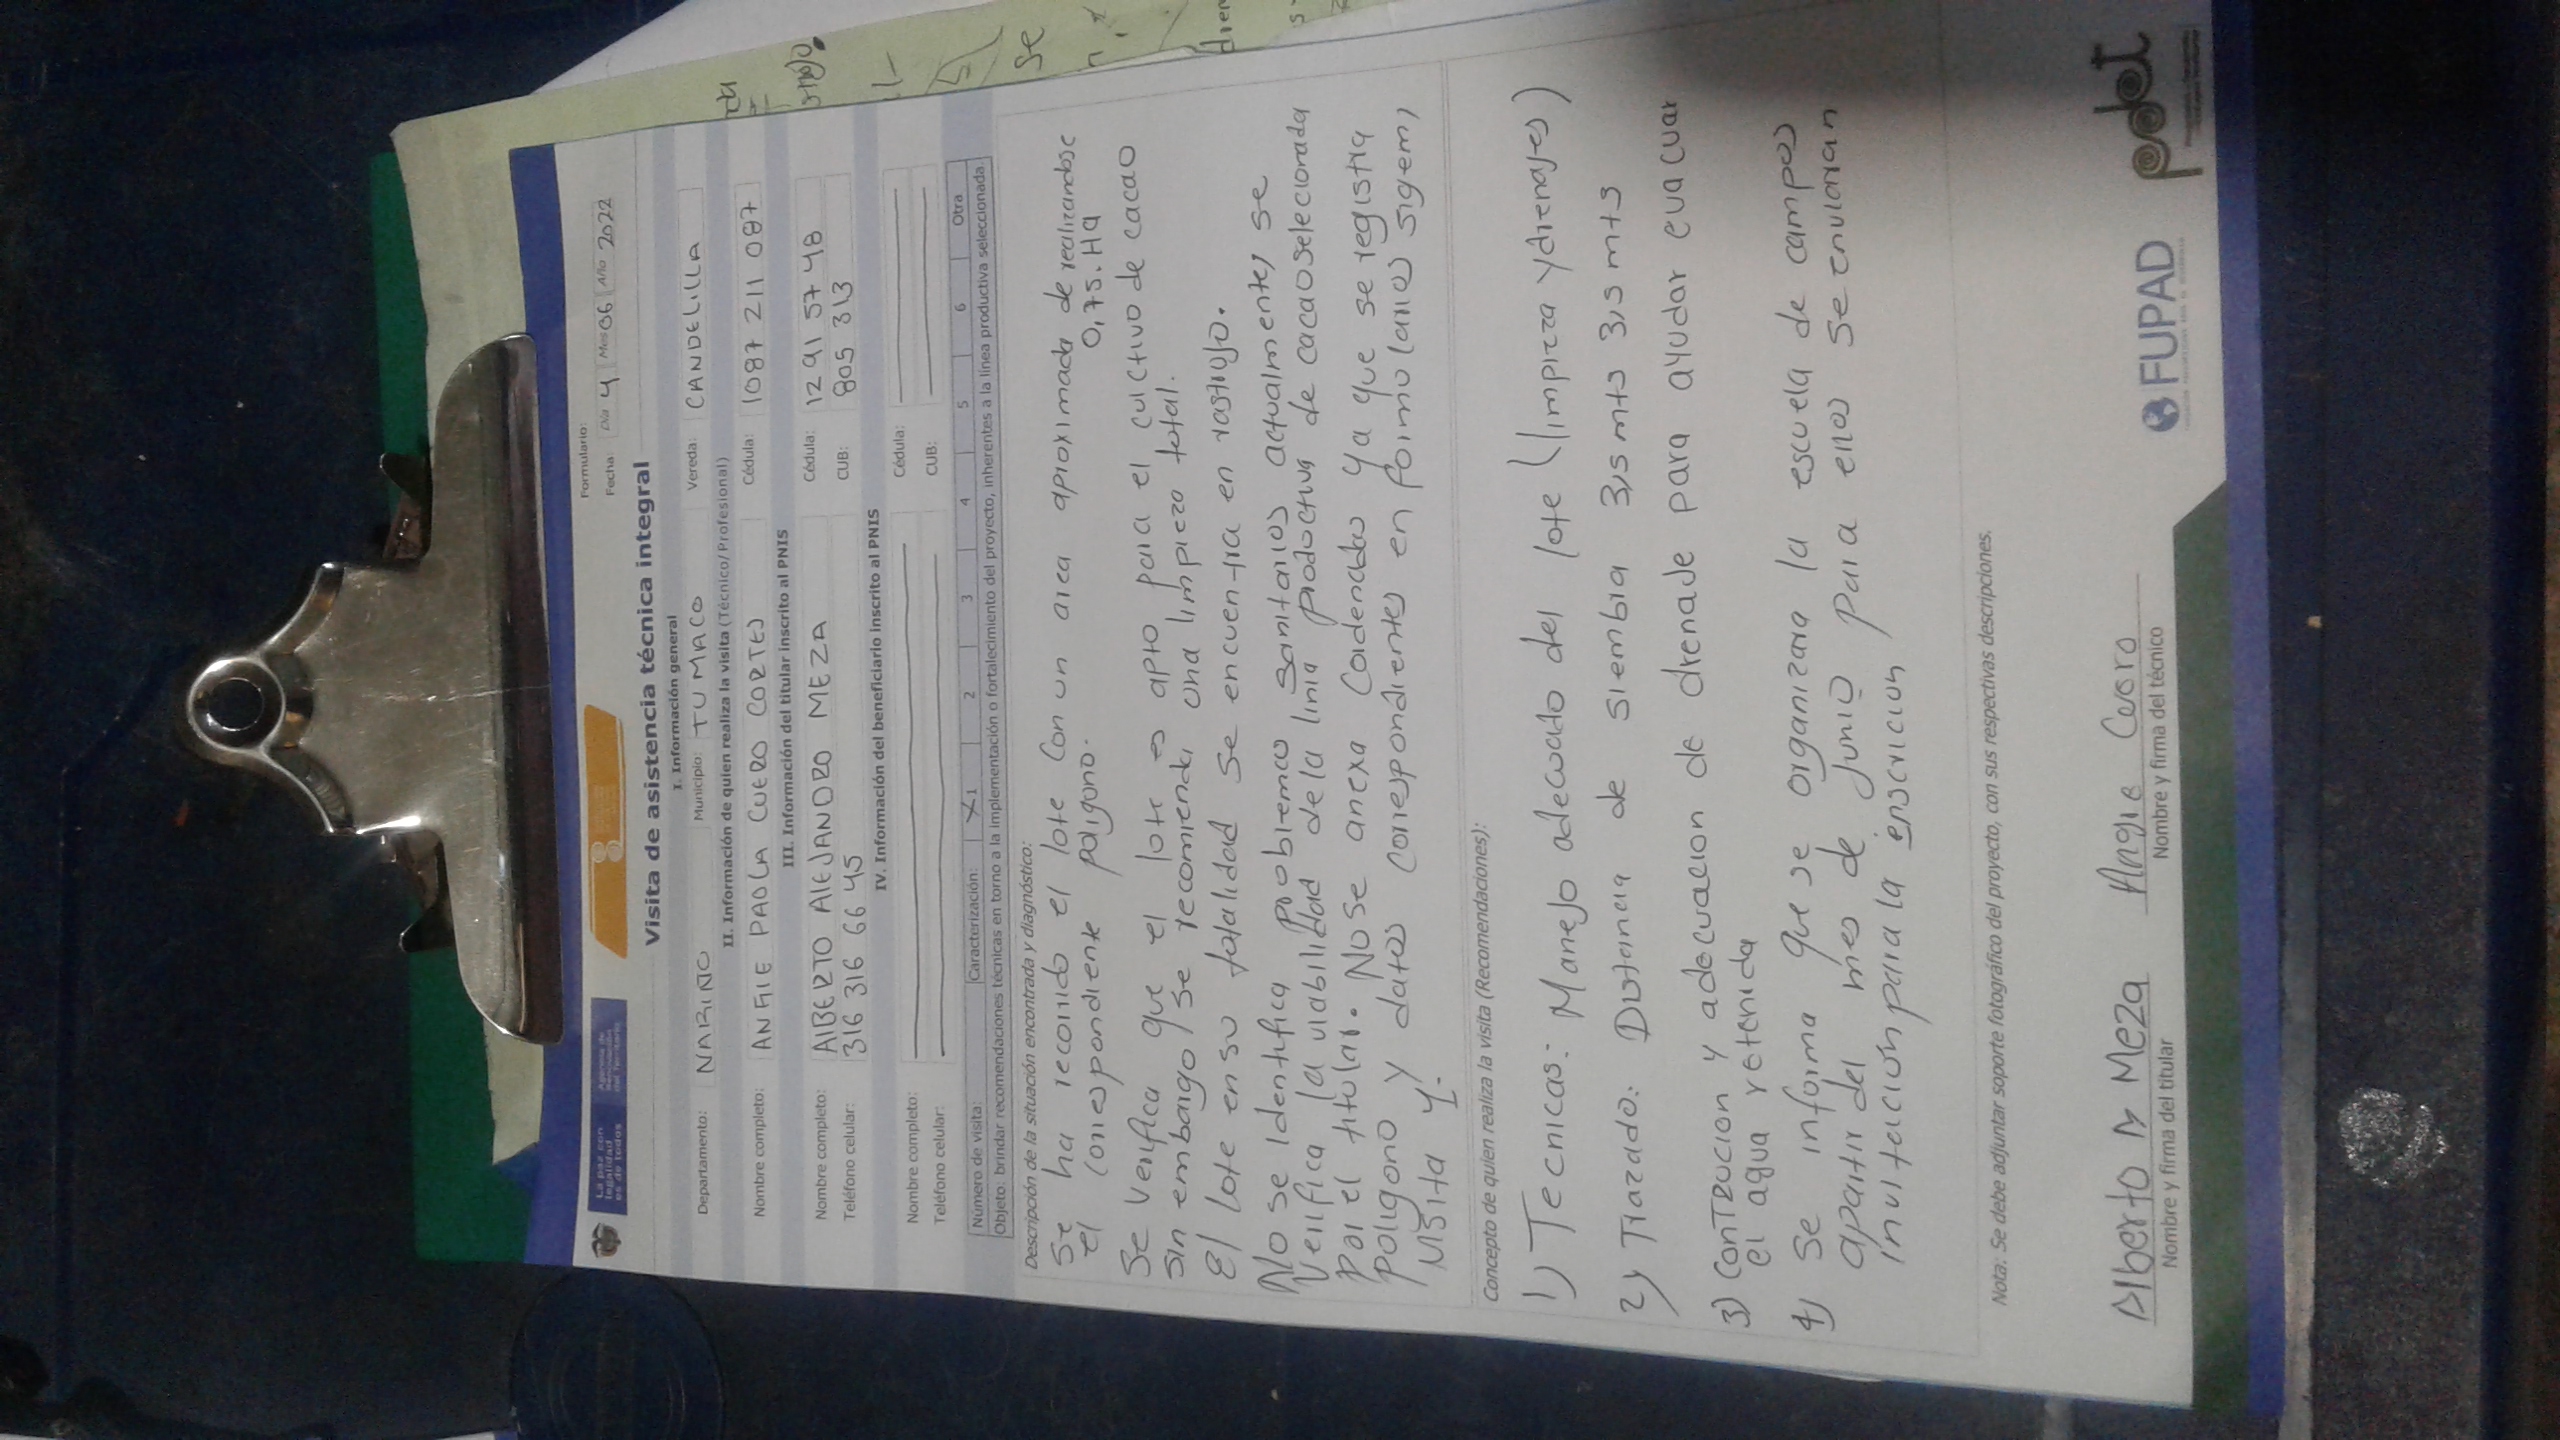 La paz con
legalidad
es de todos
Agencia de
Renovación
del Territorio
Formulario:
Fecha: Día 4 Mes 06 Año 2022
Visita de asistencia técnica integral
I. Información general
Departamento: NARIÑO Municipio: TUMACO Vereda: CANDELILLA
II. Información de quien realiza la visita (Técnico/Profesional)
Nombre completo: ANGIE PAOLA CUERO CORTES Cédula: 1087 211 087
III. Información del titular inscrito al PNIS
Nombre completo: AlBERTO AleJANDRO MEZA Cédula: 12 91 57 48
Teléfono celular: 316 316 66 45 CUB: 805 313
IV. Información del beneficiario inscrito al PNIS
Nombre completo: Cédula:
Teléfono celular: CUB:
Número de visita: Caracterización: X 1 2 3 4 5 6 Otra
Objeto: brindar recomendaciones técnicas en torno a la implementación o fortalecimiento del proyecto, inherentes a la línea productiva seleccionada.
Descripción de la situación encontrada y diagnóstico:
Se ha recorrido el lote con un area aproximada de realizandose
el correspondiente poligono. 0,75.HA
Se verifica que el lote es apto para el cultivo de cacao
Sin embargo se recomienda una limpieza total.
El lote en su totalidad se encuentra en rastrojo.
No se identifica problemas sanitarios actualmente, se
Verifica la viabilidad de la linia productiva de cacao selecionada
por el titular. No se anexa Cordenadas ya que se registra
poligono y datos correspondientes en formularios sigem,
visita 1.
Concepto de quien realiza la visita (Recomendaciones):
1) Tecnicas: Manejo adecuado del lote (limpieza y drenajes)
2) Trazado: Distancia de siembra 3,5 mts 3,5 mts
3) Contrucion y adecuacion de drenaje para ayudar evacuar
el agua retenida
4) Se informa que se organizara la escuela de campos
apartir del mes de Junio para ellos se enviaran
invitación para la enscricion
Nota. Se debe adjuntar soporte fotográfico del proyecto, con sus respectivas descripciones.
Alberto A Meza Angie Cuero
Nombre y firma del titular Nombre y firma del técnico
FUPAD
pdet